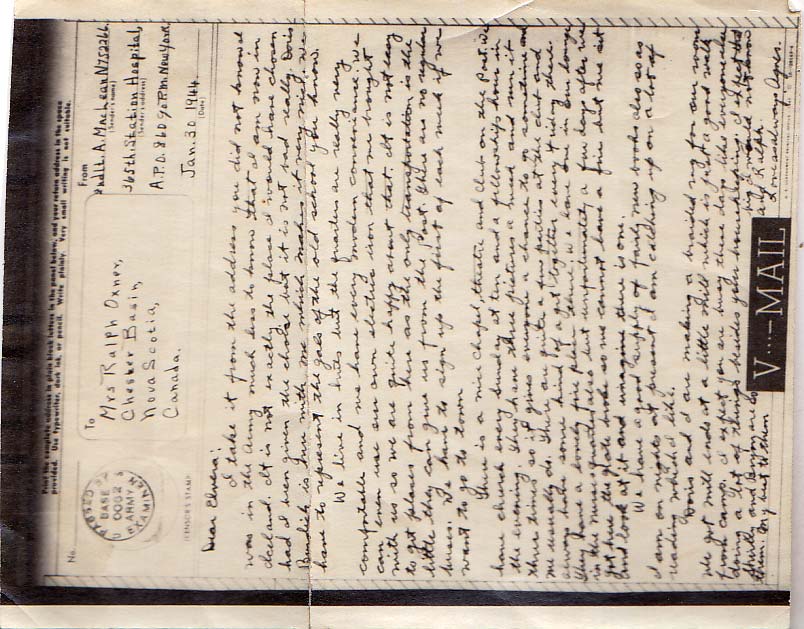 Print the complete address in plain block letters in the panel below, and your return address in the space
provided. Use typewriter, dark ink, or pencil. Write plainly. Very small writing is not suitable.
No.
PASSED BY
BASE
0082
ARMY
EXAMINER
(CENSOR'S STAMP)
To
Mrs Ralph
Chester Basin,
Nova Scotia,
Canada.
From
2nd Lt. A. MacLean N752266
(Sender's name)
365th Station Hospital,
(Sender's address)
A.P.O. 860 90 P.M. New York
Jan. 30 1944
(Date)
Dear Elvera:
I take it from the address you did not know I
was in the Army much less to know that I am now in
Iceland. It is not exactly the place I would have chosen
had I been given the choice but it is not bad really. Doris
is here with me which makes it very nice. We
have to represent the gals of the old school you know.
We live in huts but the quarters are really very
comfortable and we have every modern convenience. We
can even use our own electric iron that we brought
with us so we are quite happy about that. It is not easy
to get places from here as the only transportation is the
little they can give us from the Post. There are no regular
buses. We have to sign up the first of each week if we
want to go to town
There is a nice Chapel, theatre and Club on the Post. We
have church every Sunday at ten and a fellowship hour in
the evening. They have three pictures a week and run it
three times so it gives everyone a chance to go sometime and
we usually do. There are quite a few parties at the club and
always have some kind of a get together every Friday there.
They have a lovely fire place there. We have one in our lounge
in the nurses quarters also but unfortunately a few days after we
got here the grate broke so we cannot have a fire but we sit
and look at it and imagine there is one.
We have a good supply of fairly new books also so as
I am on nights at present I am catching up on a lot of
reading which I like.
Doris and I are making a braided rug for our room
We get mill ends at a little mill which is just a good walk
from camp. I expect you are busy these days like everyone else
doing a lot of things besides your housekeeping. I expect that
Shirley and are so big I would not know
them. My best to them and Ralph.
Love as always Agnes.
V···—MAIL